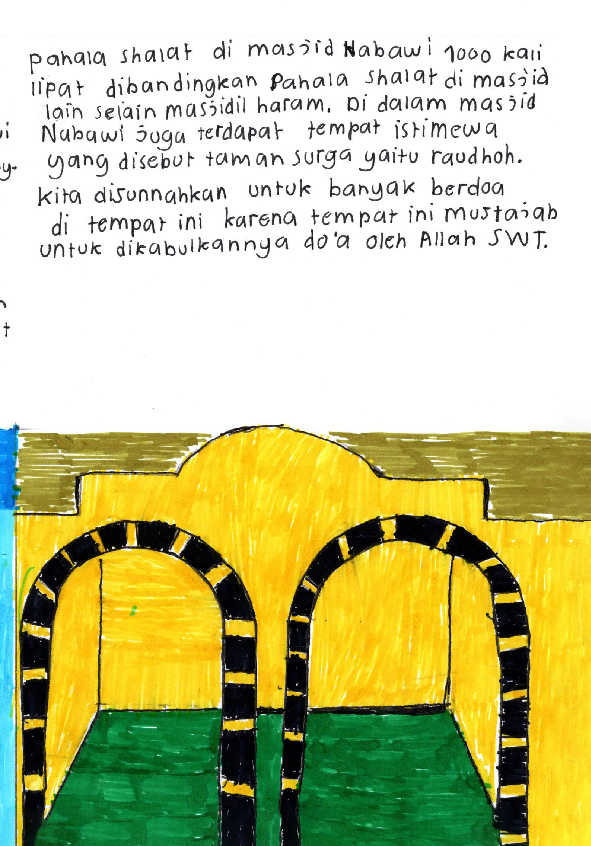 Pahala shalat di masjid Nabawi 1000 kali
lipat dibandingkan Pahala shalat di masjid
lain selain masjidil haram. Di dalam masjid
Nabawi juga terdapat tempat istimewa
yang disebut taman surga yaitu raudhoh.
Kita disunnahkan untuk banyak berdoa
di tempat ini karena tempat ini mustajab
untuk dikabulkannya do'a oleh Allah SWT.